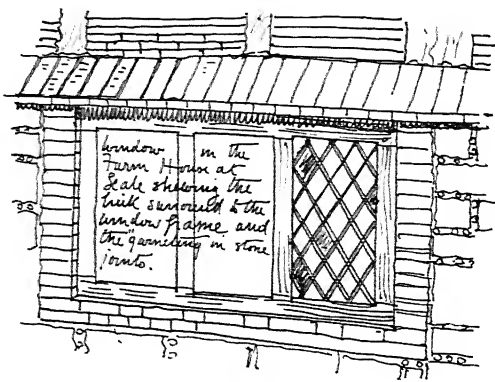 Window in the
Farm House at
Seale showing the
brick surround to the
window frame and
the "garneting in stone
joints.